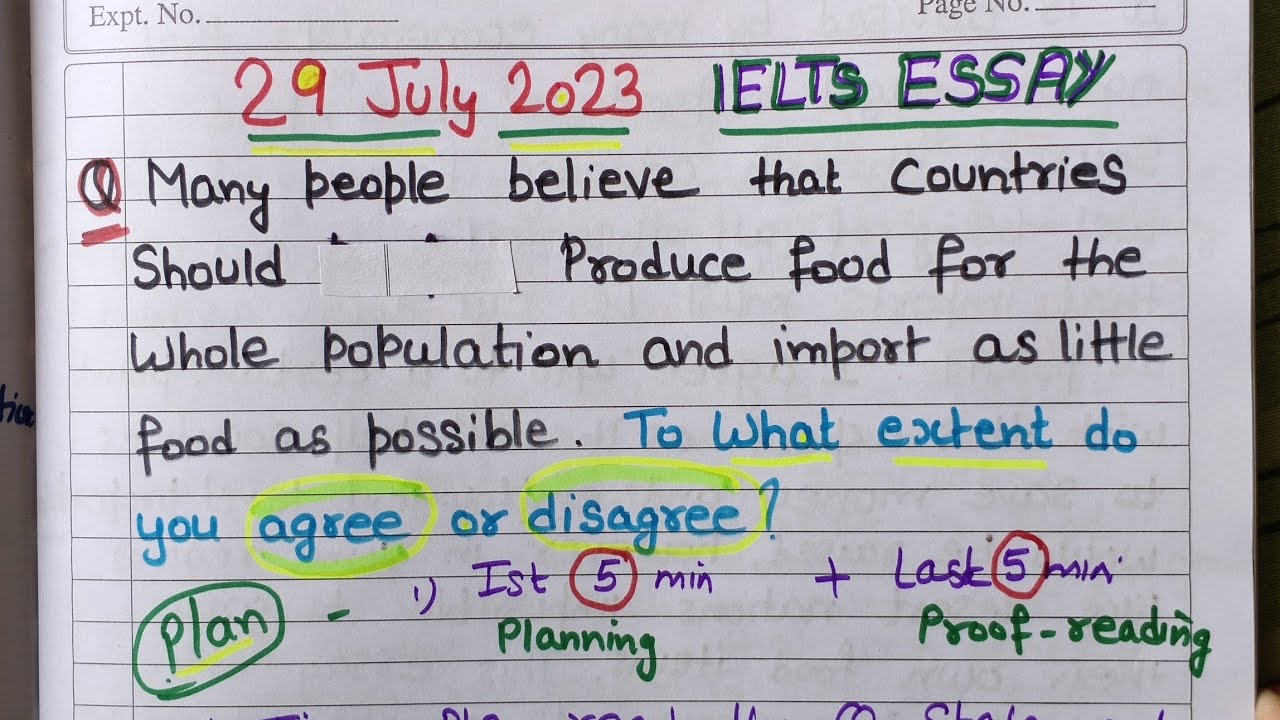 Expt. No.
Page No.
29 July 2023 IELTS ESSAY
Q Many people believe that countries
Should Produce food for the
Whole population and import as little
food as possible. To What extent do
you agree or disagree?
Plan - 1) Ist 5 min + Last 5 min
Planning Proof-reading